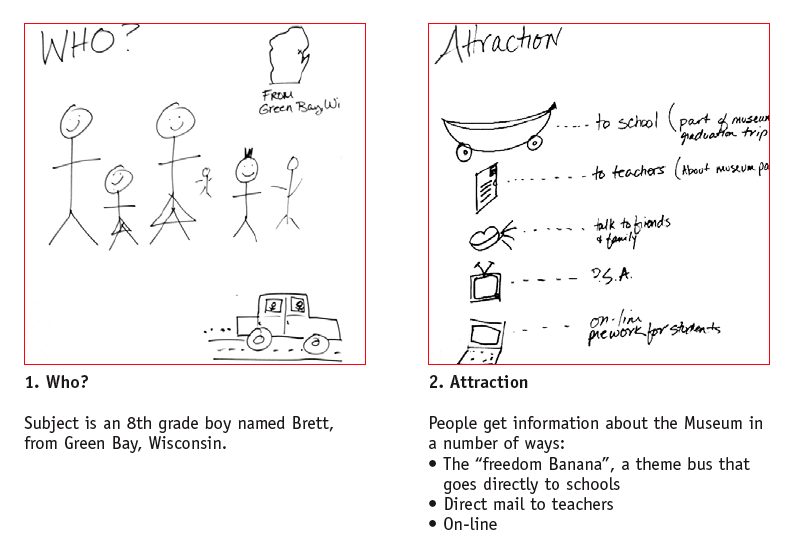 WHO?
FROM
Green Bay, Wi
1. Who?
Subject is an 8th grade boy named Brett,
from Green Bay, Wisconsin.
Attraction
to school (part of museum
graduation trip
to teachers (About museum pa
talk to friends
& family
P.S.A.
on-line
prework for students
2. Attraction
People get information about the Museum in
a number of ways:
• The “freedom Banana”, a theme bus that
goes directly to schools
• Direct mail to teachers
• On-line